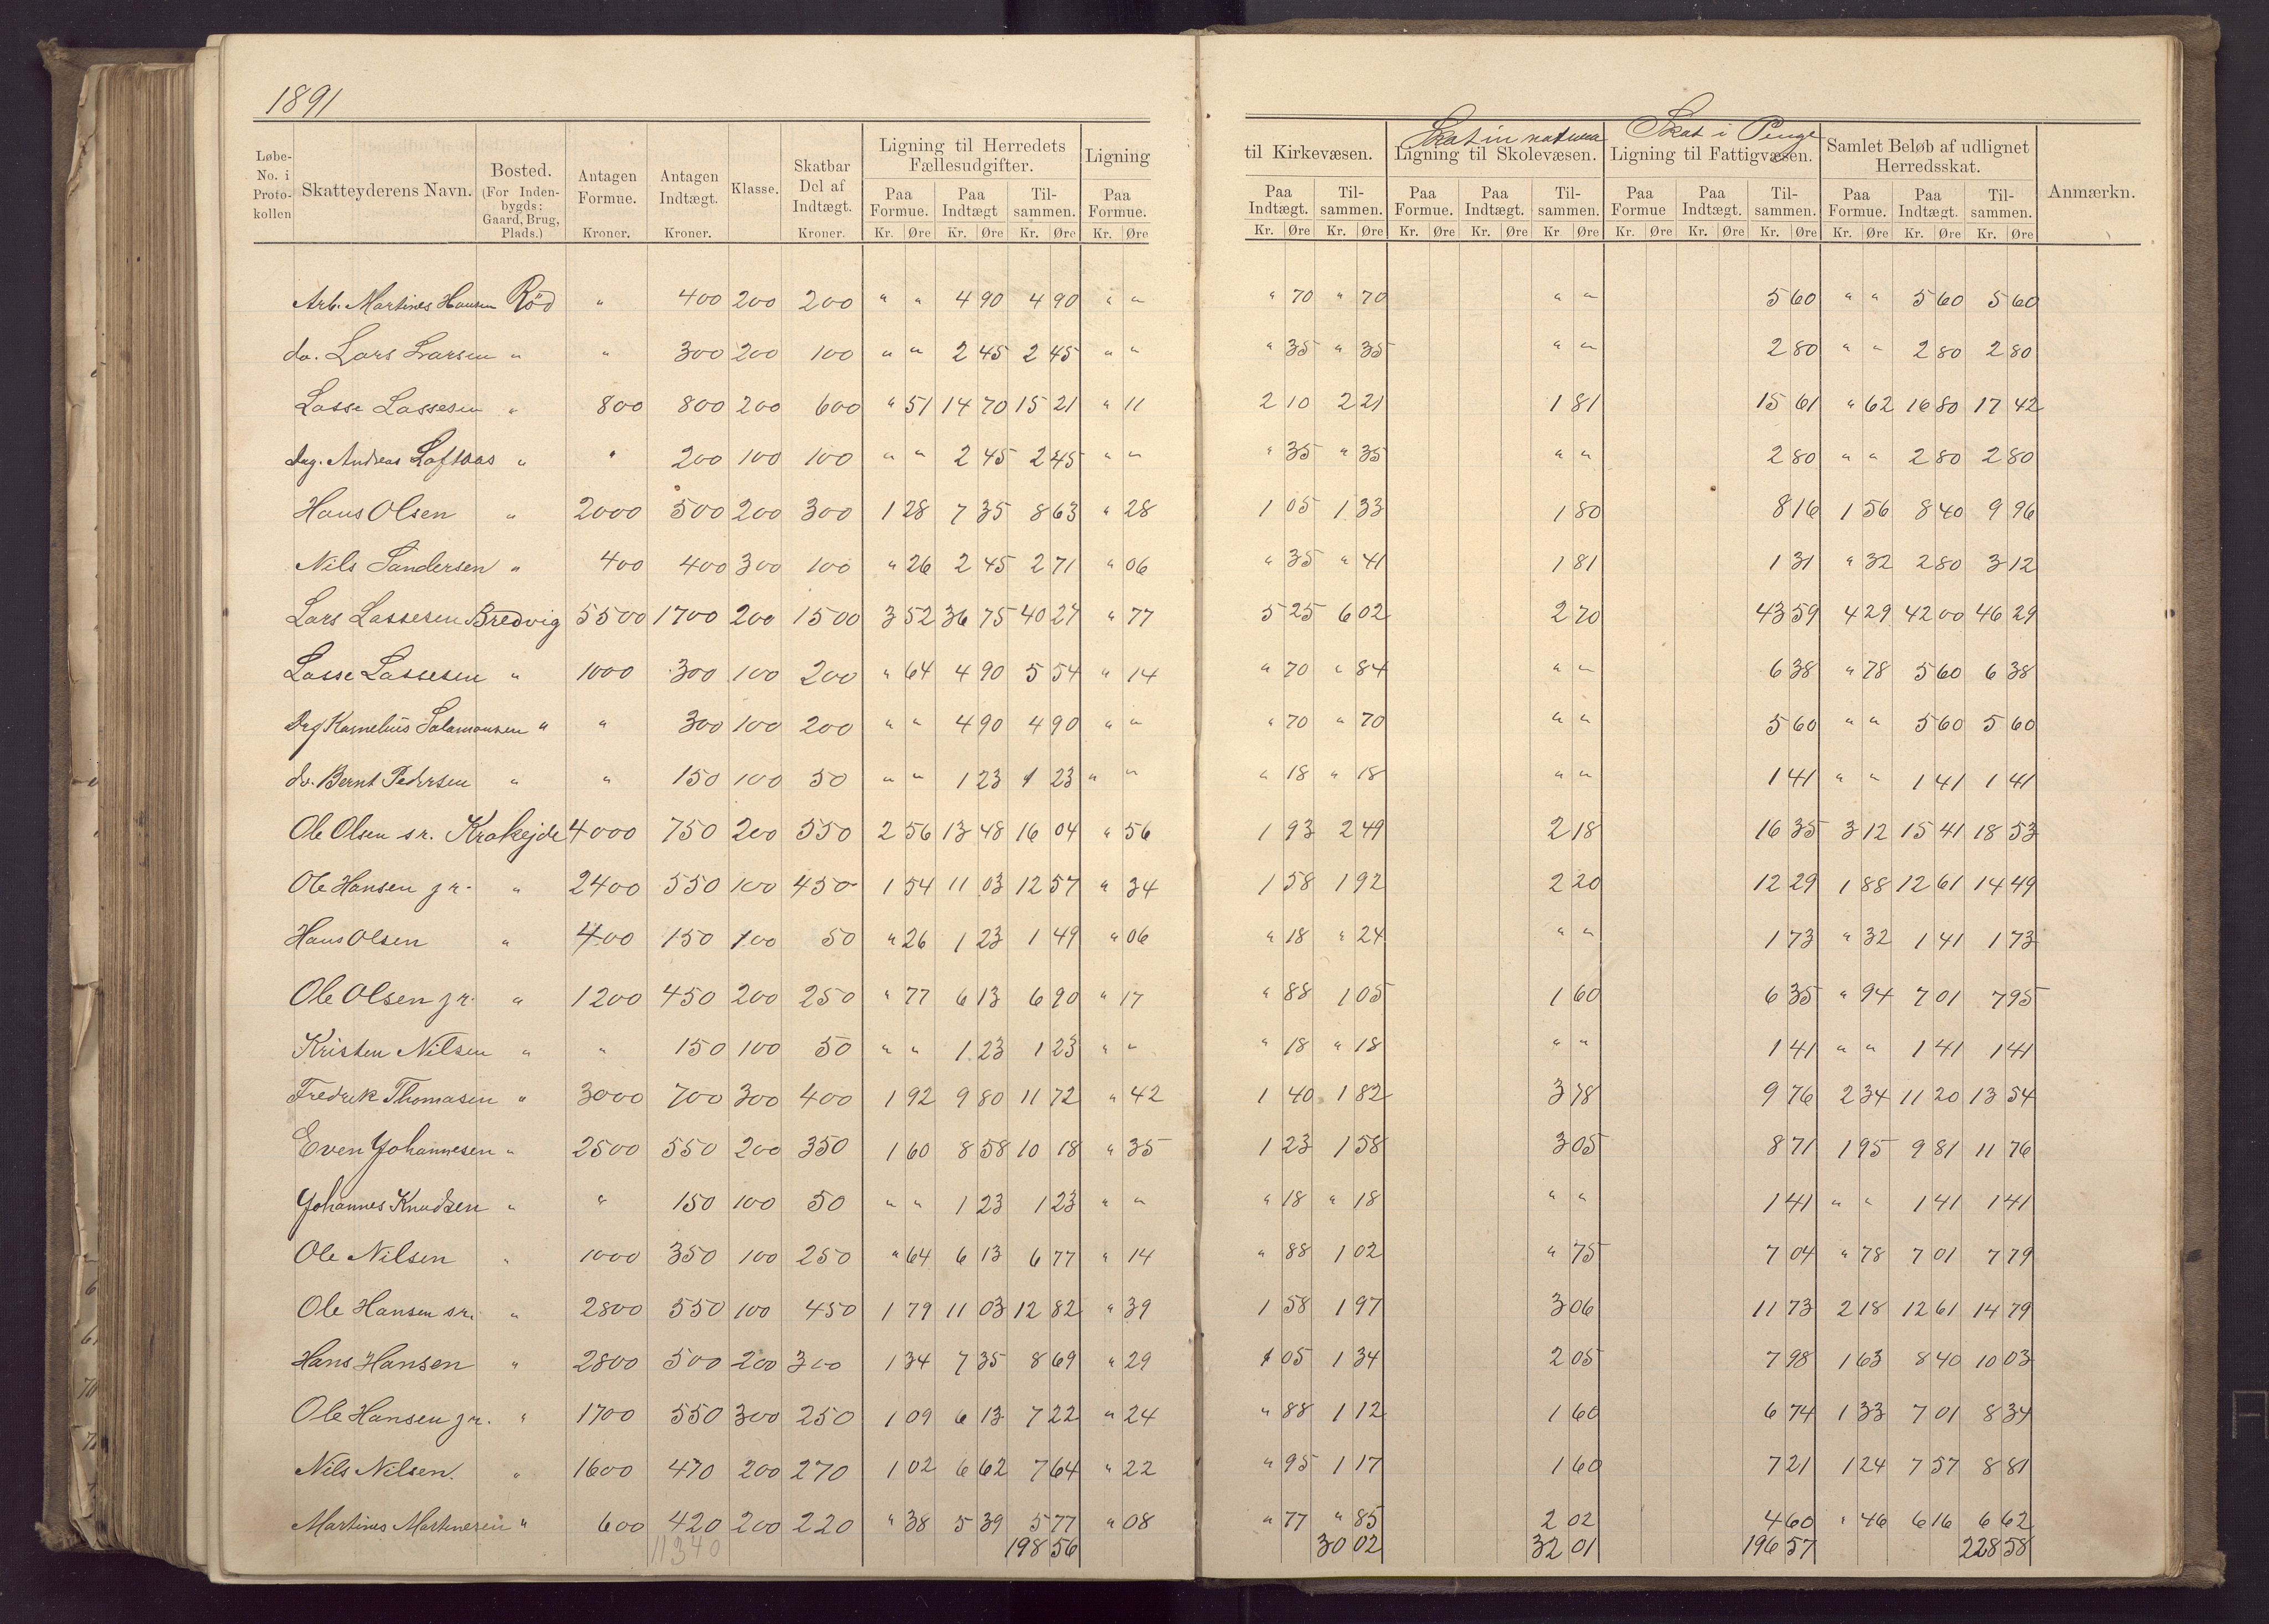 1891
Skat in natura Skat i Penge
Løbe-No. i Protokollen Skatteyderens Navn. Bosted. (For Indenbygds: Gaard, Brug, Plads.) Antagen Formue. Antagen Indtægt. Klasse. Skatbar Del af Indtægt. Ligning til Herredets Fællesudgifter. Ligning til Kirkevæsen. Ligning til Skolevæsen. Ligning til Fattigvæsen. Samlet Beløb af udlignet Herredsskat. Anmærkn.
Paa Formue. Paa Indtægt Tilsammen. Paa Formue. Paa Indtægt. Tilsammen. Paa Formue. Paa Indtægt. Tilsammen. Paa Formue Paa Indtægt. Tilsammen. Paa Formue. Paa Indtægt. Tilsammen.
Kroner. Kroner. Kroner. Kr. Øre Kr. Øre Kr. Øre Kr. Øre Kr. Øre Kr. Øre Kr. Øre Kr. Øre Kr Øre Kr. Øre Kr. Øre Kr. Øre Kr. Øre Kr. Øre Kr. Øre
Arb. Martines Hansen Röd " 400 200 200 " " 4 90 4 90 " " " 70 " 70 " " 5 60 " " 5 60 5 60
do. Lars Larsen " " 300 200 100 " " 2 45 2 45 " " " 35 " 35 " " 2 80 " " 2 80 2 80
Lasse Lassesen " 800 800 200 600 " 51 14 70 15 21 " 11 2 10 2 21 1 81 15 61 " 62 16 80 17 42
Andreas Loftaas " " 200 100 100 " " 2 45 2 45 " " " 35 " 35 " " 2 80 " " 2 80 2 80
Hans Olsen " 2000 500 200 300 1 28 7 35 8 63 " 28 1 05 1 33 1 80 8 16 1 56 8 40 9 96
Nils Sandersen " 400 400 300 100 " 26 2 45 2 71 " 06 " 35 " 41 1 81 1 31 " 32 2 80 3 12
Lars Lassesen Bredvig 5500 1700 200 1500 3 52 36 75 40 27 " 77 5 25 6 02 2 70 43 59 4 29 42 00 46 29
Lasse Lassesen " 1000 300 100 200 " 64 4 90 5 54 " 14 " 70 " 84 " " 6 38 " 78 5 60 6 38
Drg Kornelius Salamonsen " " 300 100 200 " " 4 90 4 90 " " " 70 " 70 " " 5 60 " " 5 60 5 60
do. Bernt Pedersen " " 150 100 50 " " 1 23 1 23 " " " 18 " 18 " " 1 41 " " 1 41 1 41
Ole Olsen sr. Krakejde 4000 750 200 550 2 56 13 48 16 04 " 56 1 93 2 49 2 18 16 35 3 12 15 41 18 53
Ole Hansen jr. " 2400 550 100 450 1 54 11 03 12 57 " 34 1 58 1 92 2 20 12 29 1 88 12 61 14 49
Hans Olsen " 400 150 100 50 " 26 1 23 1 49 " 06 " 18 " 24 " " 1 73 " 32 1 41 1 73
Ole Olsen jr. " 1200 450 200 250 " 77 6 13 6 90 " 17 " 88 1 05 1 60 6 35 " 94 7 01 7 95
Kristen Nilsen " " 150 100 50 " " 1 23 1 23 " " " 18 " 18 " " 1 41 " " 1 41 1 41
Fredrik Thomasen " 3000 700 300 400 1 92 9 80 11 72 " 42 1 40 1 82 3 78 9 76 2 34 11 20 13 54
Even Johannesen " 2500 550 200 350 1 60 8 58 10 18 " 35 1 23 1 58 3 05 8 71 1 95 9 81 11 76
Johannes Knudsen " " 150 100 50 " " 1 23 1 23 " " " 18 " 18 " " 1 41 " " 1 41 1 41
Ole Nilsen " 1000 350 100 250 " 64 6 13 6 77 " 14 " 88 1 02 " 75 7 04 " 78 7 01 7 79
Ole Hansen sr. " 2800 550 100 450 1 79 11 03 12 82 " 39 1 58 1 97 3 06 11 73 2 18 12 61 14 79
Hans Hansen " 2800 500 200 300 1 34 7 35 8 69 " 29 1 05 1 34 2 05 7 98 1 63 8 40 10 03
Ole Hansen jr. " 1700 550 300 250 1 09 6 13 7 22 " 24 " 88 1 12 1 60 6 74 1 33 7 01 8 34
Nils Nilsen. " 1600 470 200 270 1 02 6 62 7 64 " 22 " 95 1 17 1 60 7 21 1 24 7 57 8 81
Martines Martinesen " 600 420 200 220 " 38 5 39 5 77 " 08 " 77 " 85 2 02 4 60 " 46 6 16 6 62
11340 198 56 30 02 32 01 196 57 228 58